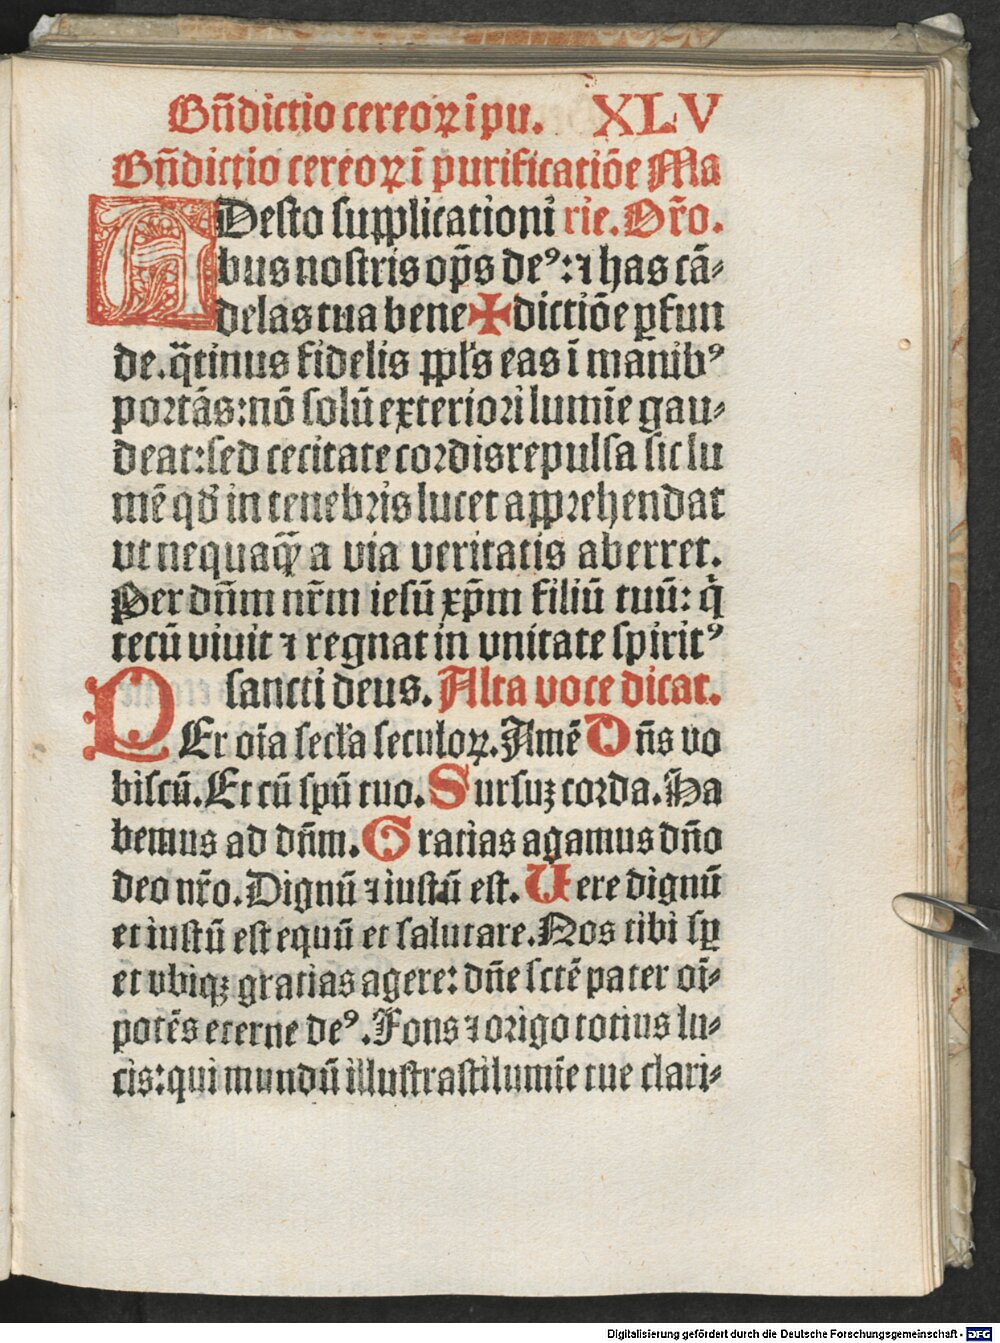 Bn̄dictio cereoꝝ ī pu. XLV
Bn̄dictio cereoꝝ ī purificatiōe Ma
ADesto supplicationi rie. Or̄o.
bus nostris op̄s deꝰ: ⁊ has cā⸗
delas tua bene✠dictiōe ꝑfun
de. q̄tinus fidelis ppl̄s eas ī manibꝰ
portās: nō solū exteriori lumīe gau⸗
deat: sed cecitate cordis repulsa sic lu
mē qď in tenebris lucet apprehendat
vt nequaq̄ꝫ a via veritatis aberret.
Per dn̄m nr̄m iesū xp̄m filiū tuū: q̇
tecū viuit ⁊ regnat in vnitate spiritꝰ
sancti deus. Alta voce dicat.
PEr oīa secl̄a seculoꝝ. Amē Dn̄s vo
biscū. Et cū spū tuo. Sursuꝫ corda. Ha
bemus ad dn̄m. Gratias agamus dn̄o
deo nr̄o. Dignū ⁊ iustū est. Uere dignū
et iustū est equū et salutare. Nos tibi sꝑ
et vbiqꝫ gratias agere: dn̄e sctē pater oī⸗
potēs eterne deꝰ. Fons ⁊ origo totius lu⸗
cis: qui mundū illustrasti lumīe tue clari⸗
Digitalisierung gefördert durch die Deutsche Forschungsgemeinschaft - DFG